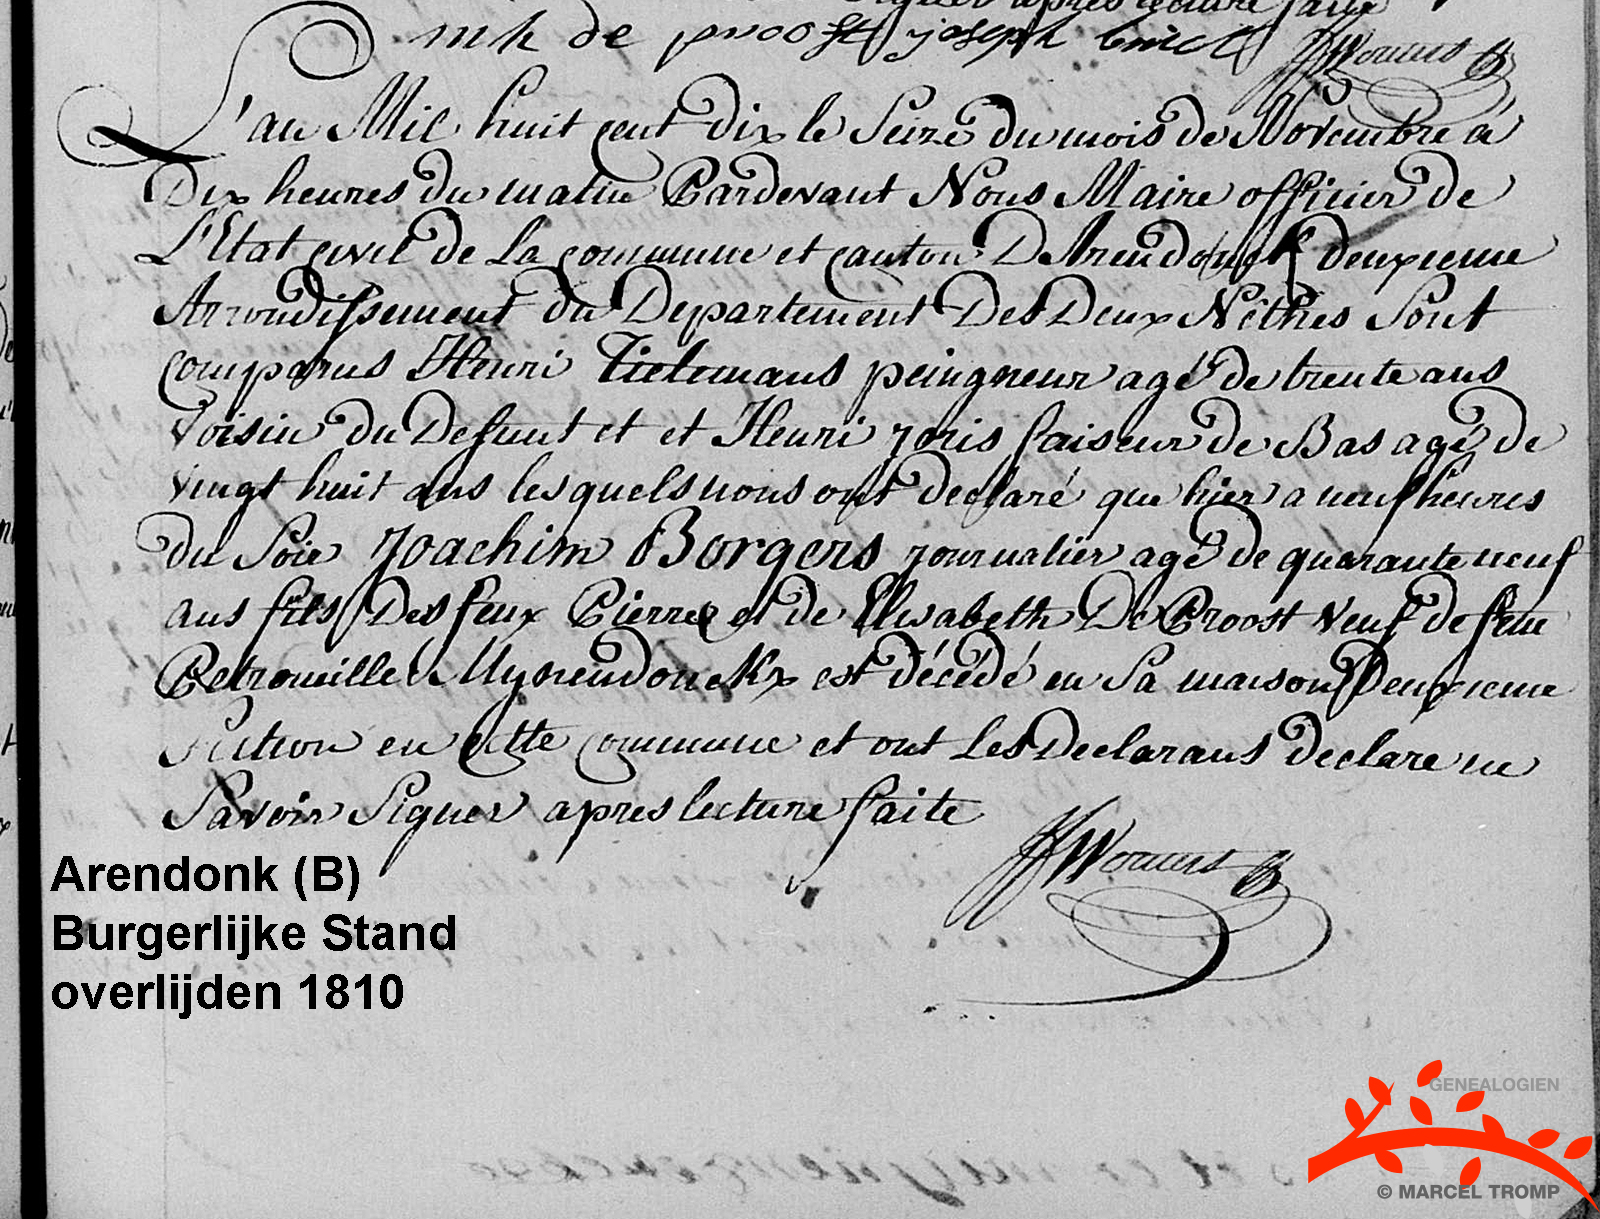 signer apres lecture faite
mk de proost joseph HWouters
L'an Mil huit cent dix le Seize du mois de Novembre a
Dix heures du matin Pardevant Nous Maire officier de
L'Etat civil de La commune et canton D'Arendonck deuxieme
Arrondissement du Departement Des Deux Nethes Sont
comparus Henri Tielemans peingneur agé de trente ans
Voisin du Defunt et et Henri Joris faiseur de Bas agé de
vingt huit ans lesquels nous ont declaré que hier a neuf heures
du Soir Joachim Borgers journalier agé de quarante neuf
ans fils Des feux Pierre et de Elisabeth De Proost Veuf de feue
Petronille Mynendonckx est décédé en Sa maison Deuxieme
Section en cette commune et ont Les Declarans declare ne
Savoir Signer apres lecture faite
Wouters
Arendonk (B)
Burgerlijke Stand
overlijden 1810
GENEALOGIEN
© MARCEL TROMP